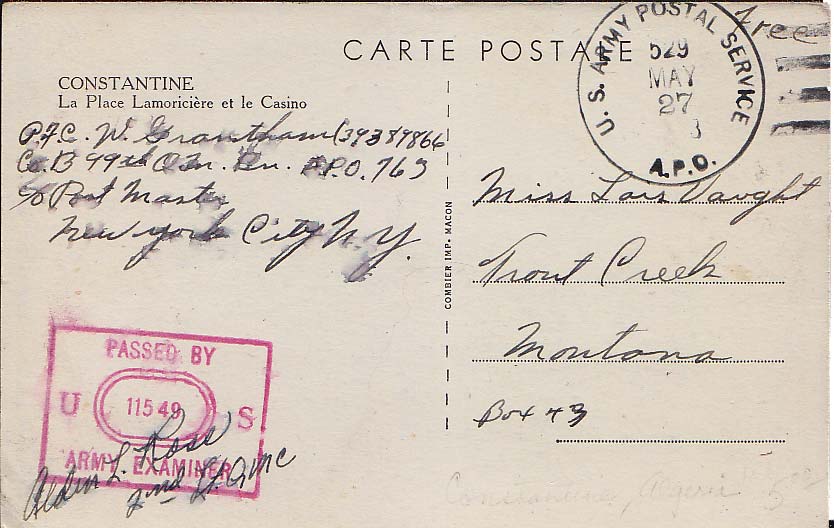 CARTE POSTALE
CONSTANTINE
La Place Lamoricière et le Casino
P.F.C. W. Grantham (39387866
Co. B 99th Q.M. Bn. A.P.O. 763
c/o Post Master
New York City N.Y.
PASSED BY
U 11549 S
ARMY EXAMINER
Rose
2nd Lt QMC
COMBIER IMP. MACON
Free
U. S. ARMY POSTAL SERVICE
529
MAY
27
3
A.P.O.
Miss Lois Vaught
Trout Creek
Montana
Box 43
Constantine, Algeria